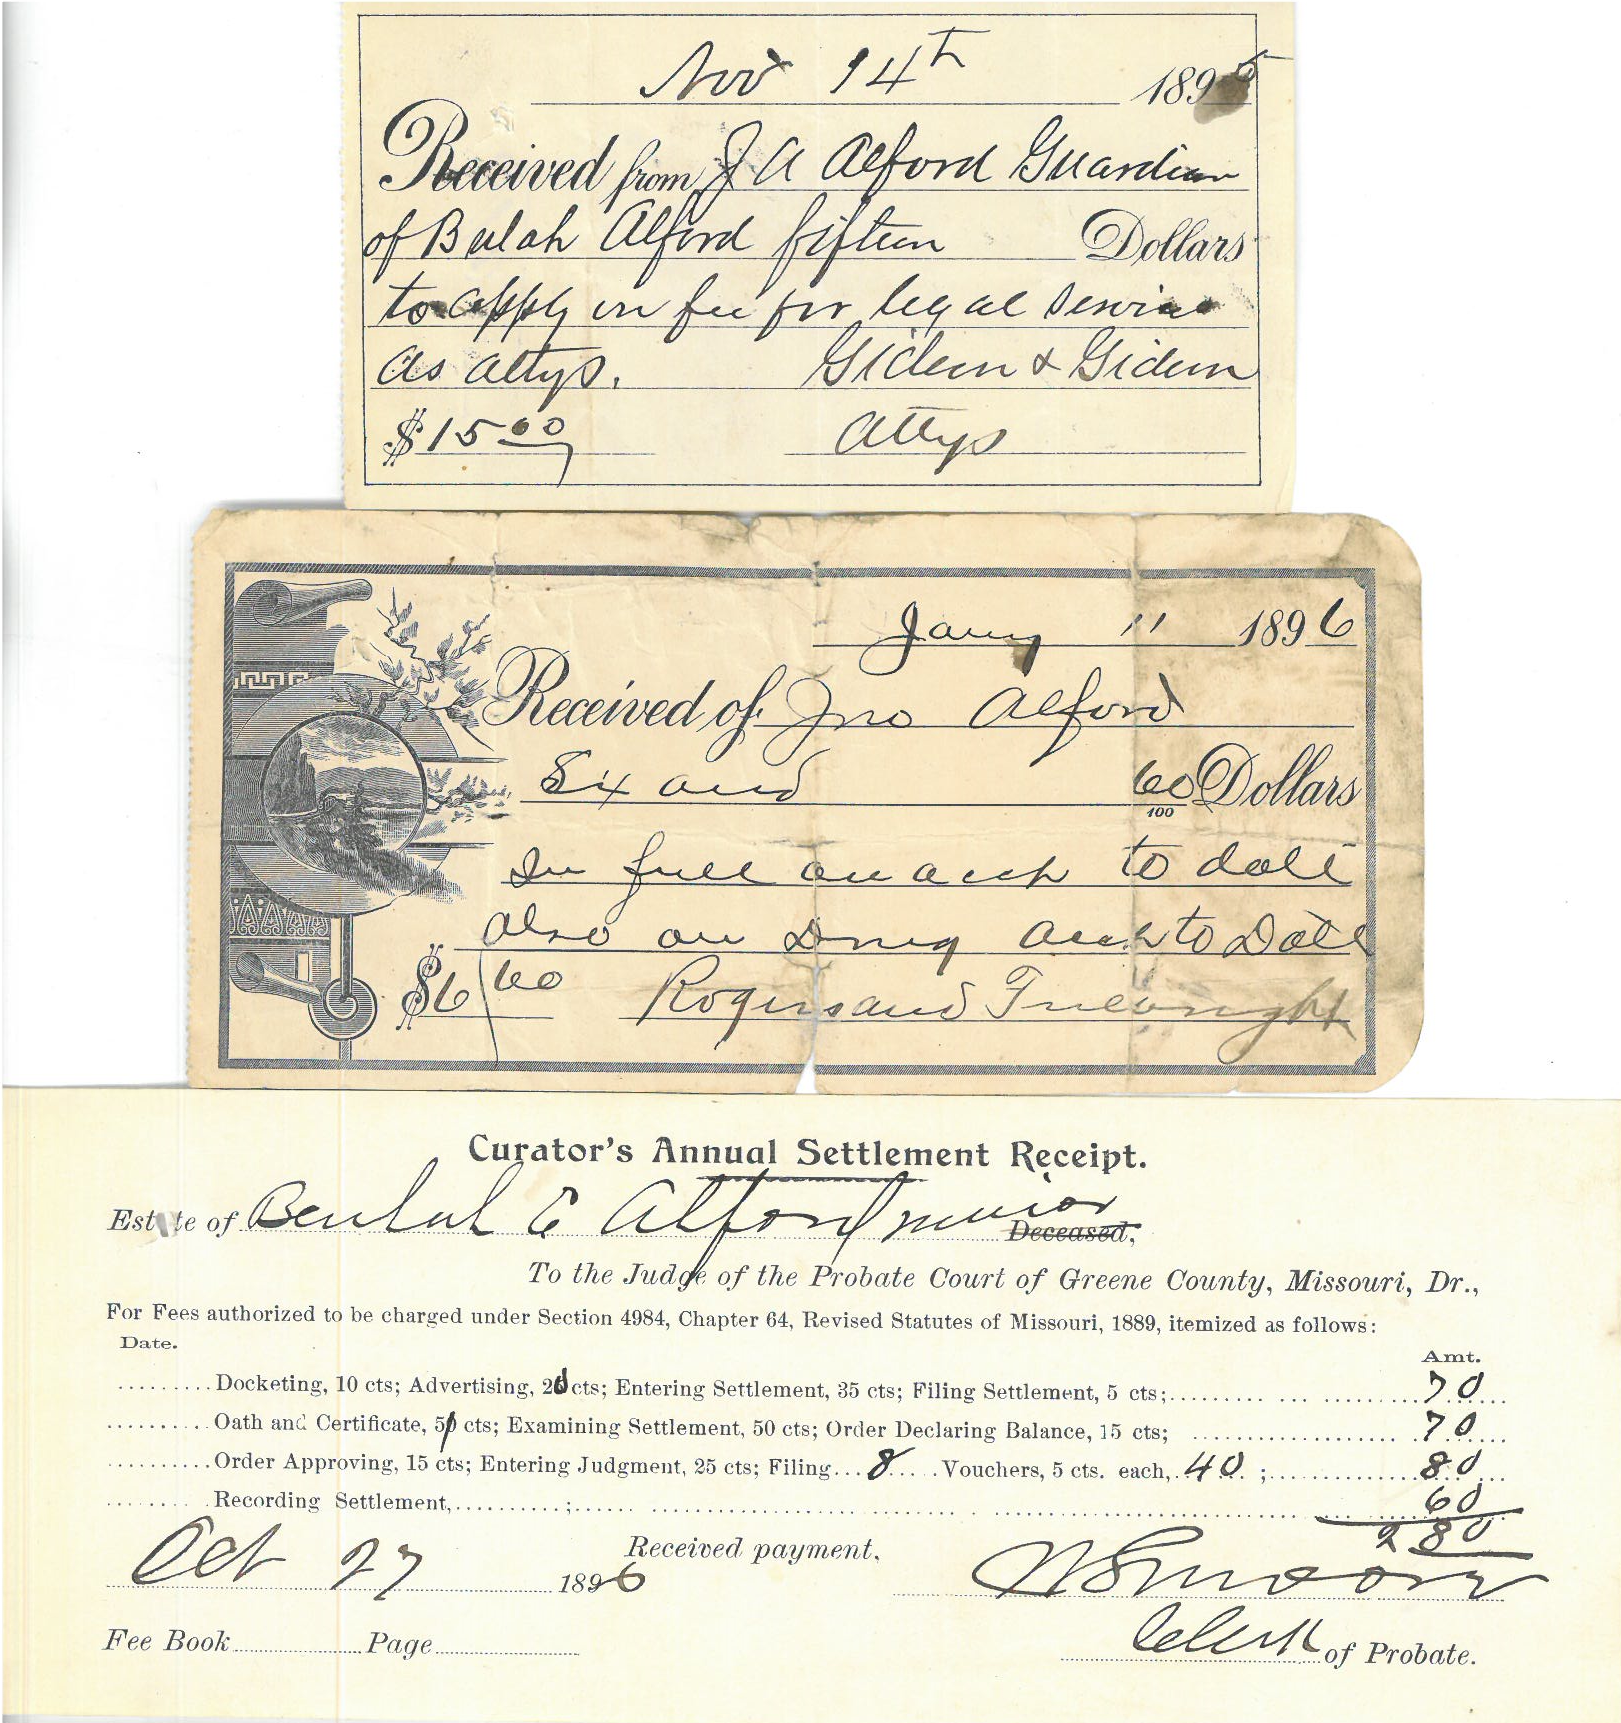 Nov 14th 1895
Received from J A Alford Guardian
of Beulah Alford fifteen Dollars
to apply on fee for legal service
as attys. Gideon & Gideon
$15.00 Attys
Jany 11 1896
Received of Jno Alford
Six and 60/100 Dollars
In full on acct to date
also on Drug acct to Date
$6 60 Rogers and Freebright
Curator's Annual Settlement Receipt.
Estate of Beulah E Alford minor Deceased,
To the Judge of the Probate Court of Greene County, Missouri, Dr.,
For Fees authorized to be charged under Section 4984, Chapter 64, Revised Statutes of Missouri, 1889, itemized as follows:
Date.
Amt.
Docketing, 10 cts; Advertising, 20 cts; Entering Settlement, 35 cts; Filing Settlement, 5 cts; 70
Oath and Certificate, 5 cts; Examining Settlement, 50 cts; Order Declaring Balance, 15 cts; 70
Order Approving, 15 cts; Entering Judgment, 25 cts; Filing 8 Vouchers, 5 cts. each, 40; 80
Recording Settlement, ; 60
2 80
Received payment,
Oct 27 1896
Clerk of Probate.
Fee Book Page